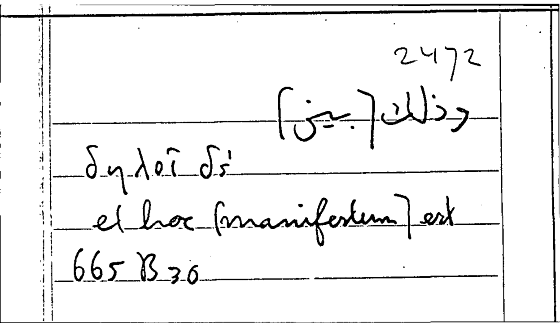 2472
وذلك [بين]
δηλοῖ δέ
et hoc [manifestum] est
665 B 30